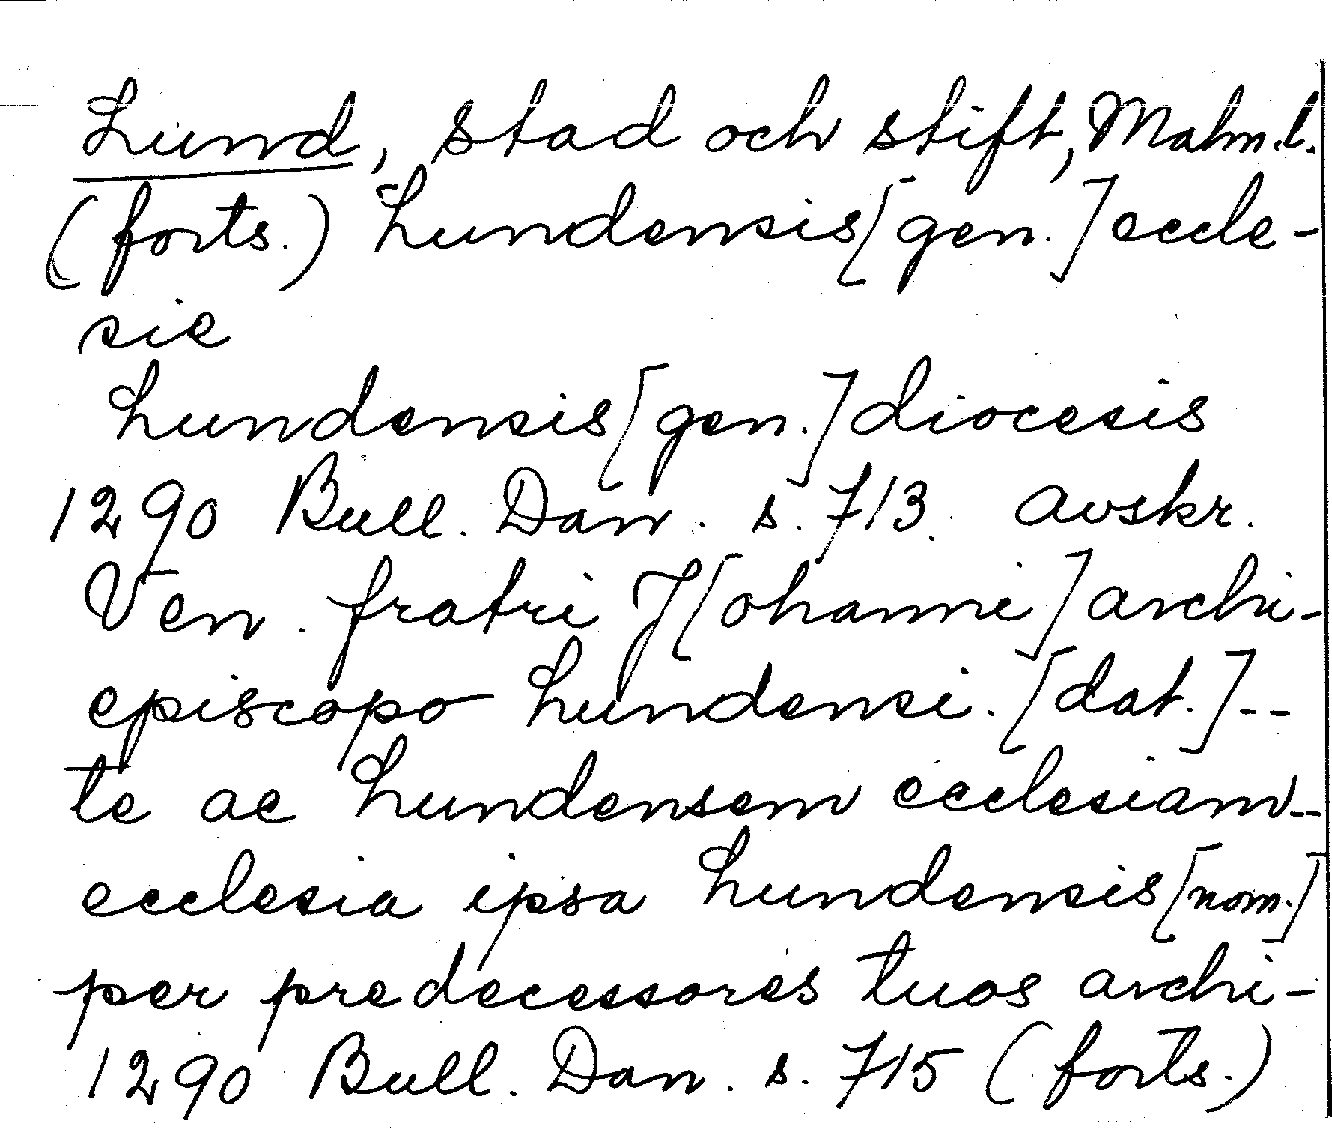 Lund, stad och stift, Malm.l.
(forts.) Lundensis [gen.] eccle-
sie
Lundensis [gen.] diocesis
1290 Bull. Dan. s. 713. avskr.
Ven. fratri J[ohanni] archi-
episcopo Lundensi. [dat.] --
te ac Lundensem ecclesiam --
ecclesia ipsa Lundensis [nom.]
per predecessores tuos archi-
1290 Bull. Dan. s. 715 (forts.)